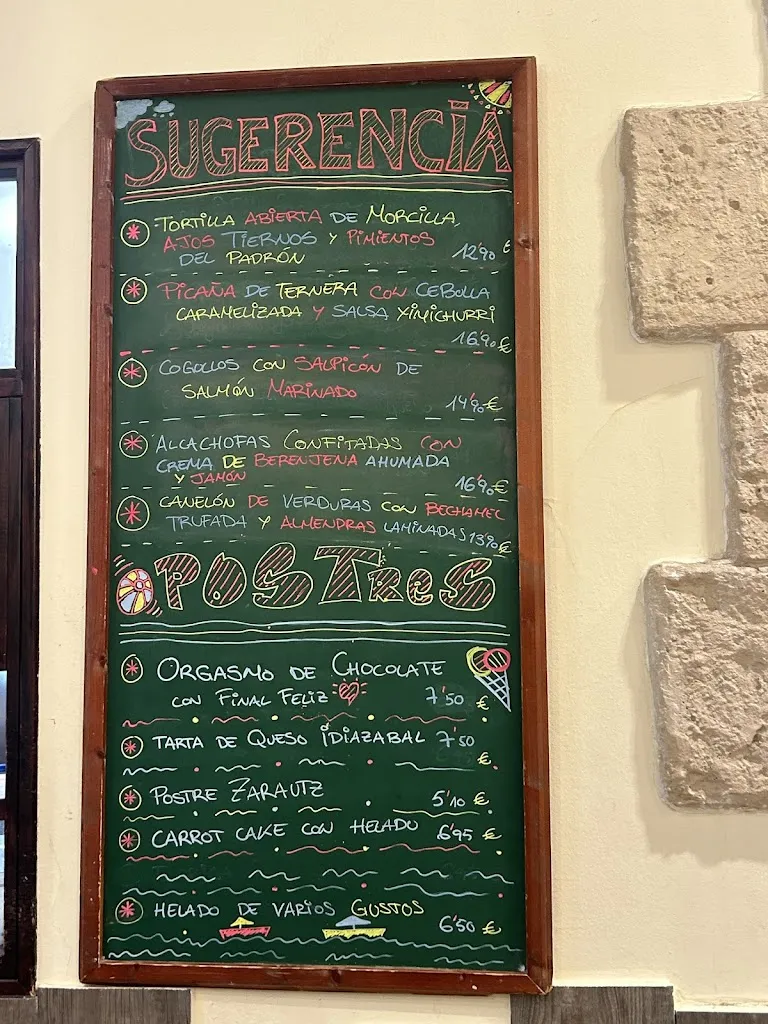 SUGERENCIA
TORTILLA ABIERTA DE MORCILLA,
AJOS TIERNOS Y PIMIENTOS
DEL PADRÓN 12'90 €
PICAÑA DE TERNERA CON CEBOLLA
CARAMELIZADA Y SALSA XIMICHURRI
16'90 €
COGOLLOS CON SALPICÓN DE
SALMÓN MARINADO
14'90 €
ALCACHOFAS CONFITADAS CON
CREMA DE BERENJENA AHUMADA
Y JAMÓN 16'90 €
CANELÓN DE VERDURAS CON BECHAMEL
TRUFADA Y ALMENDRAS LAMINADAS 13'90 €
POSTRES
ORGASMO DE CHOCOLATE
CON FINAL FELIZ 7'50 €
TARTA DE QUESO IDIAZABAL 7'50
€
POSTRE ZARAUTZ 5'10 €
CARROT CAKE CON HELADO 6'95 €
HELADO DE VARIOS GUSTOS
6'50 €